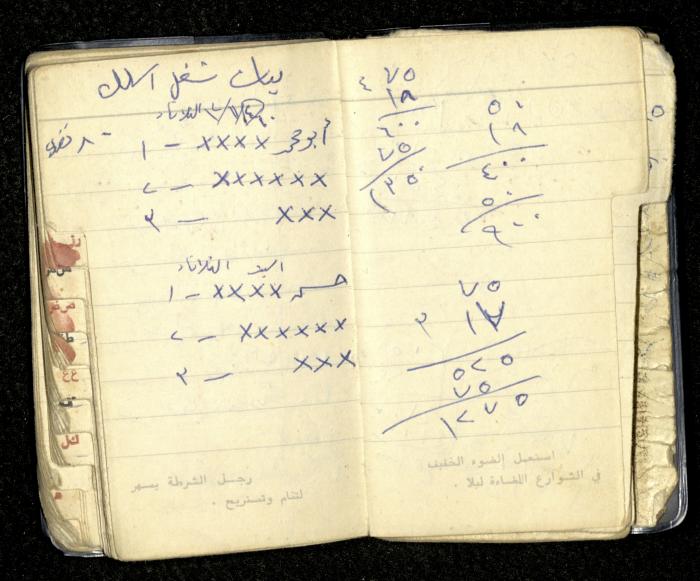 بيان شغل اسلك
الثلاثاء
أبو محمد xxxx - ١
xxxxxx - ٢
xxx - ٣
السبت الثلاثاء
حسن xxxx - ١
xxxxxx - ٢
xxx - ٣
رجل الشرطة يسهر
لتنام وتستريح .
٤ ٧٥
١٨
٦٠٠
٧٥
١٣٥٠
٥٠
١٨
٤٠٠
٥٠
٩٠٠
٧٥
٣ ١٧
٥٢٥
٧٥
١٢٧٥
استعمل الضوء الخفيف
في الشوارع المضاءة ليلا .